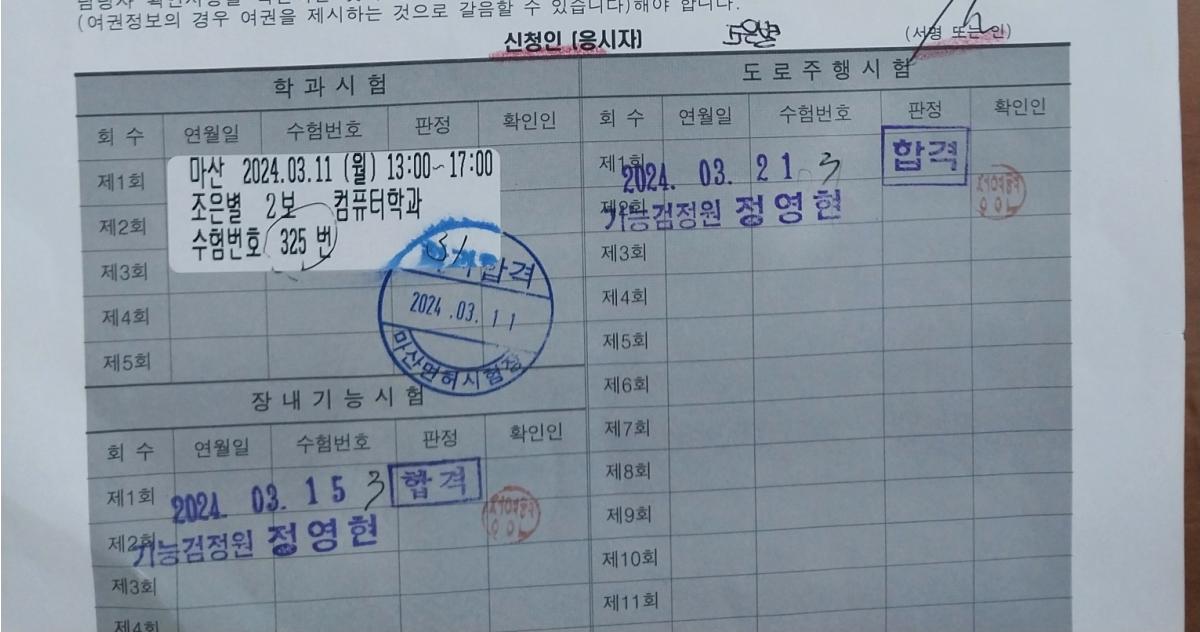 (여권정보의 경우 여권을 제시하는 것으로 갈음할 수 있습니다)해야 합니다.
신청인 (응시자)
(서명 또는 인)
학과시험
회 수 연월일 수험번호 판정 확인인
제1회
제2회
제3회
제4회
제5회
마산 2024.03.11 (월) 13:00~17:00
조은별 2보 컴퓨터학과
수험번호 325 번
합격
2024.03.11
마산면허시험장
장내기능시험
회 수 연월일 수험번호 판정 확인인
제1회 2024. 03. 15 3 합격
제2회
기능검정원 정영현
제3회
제4회
도로주행시험
회 수 연월일 수험번호 판정 확인인
제1회 2024. 03. 21 3 합격
제2회
기능검정원 정영현
제3회
제4회
제5회
제6회
제7회
제8회
제9회
제10회
제11회